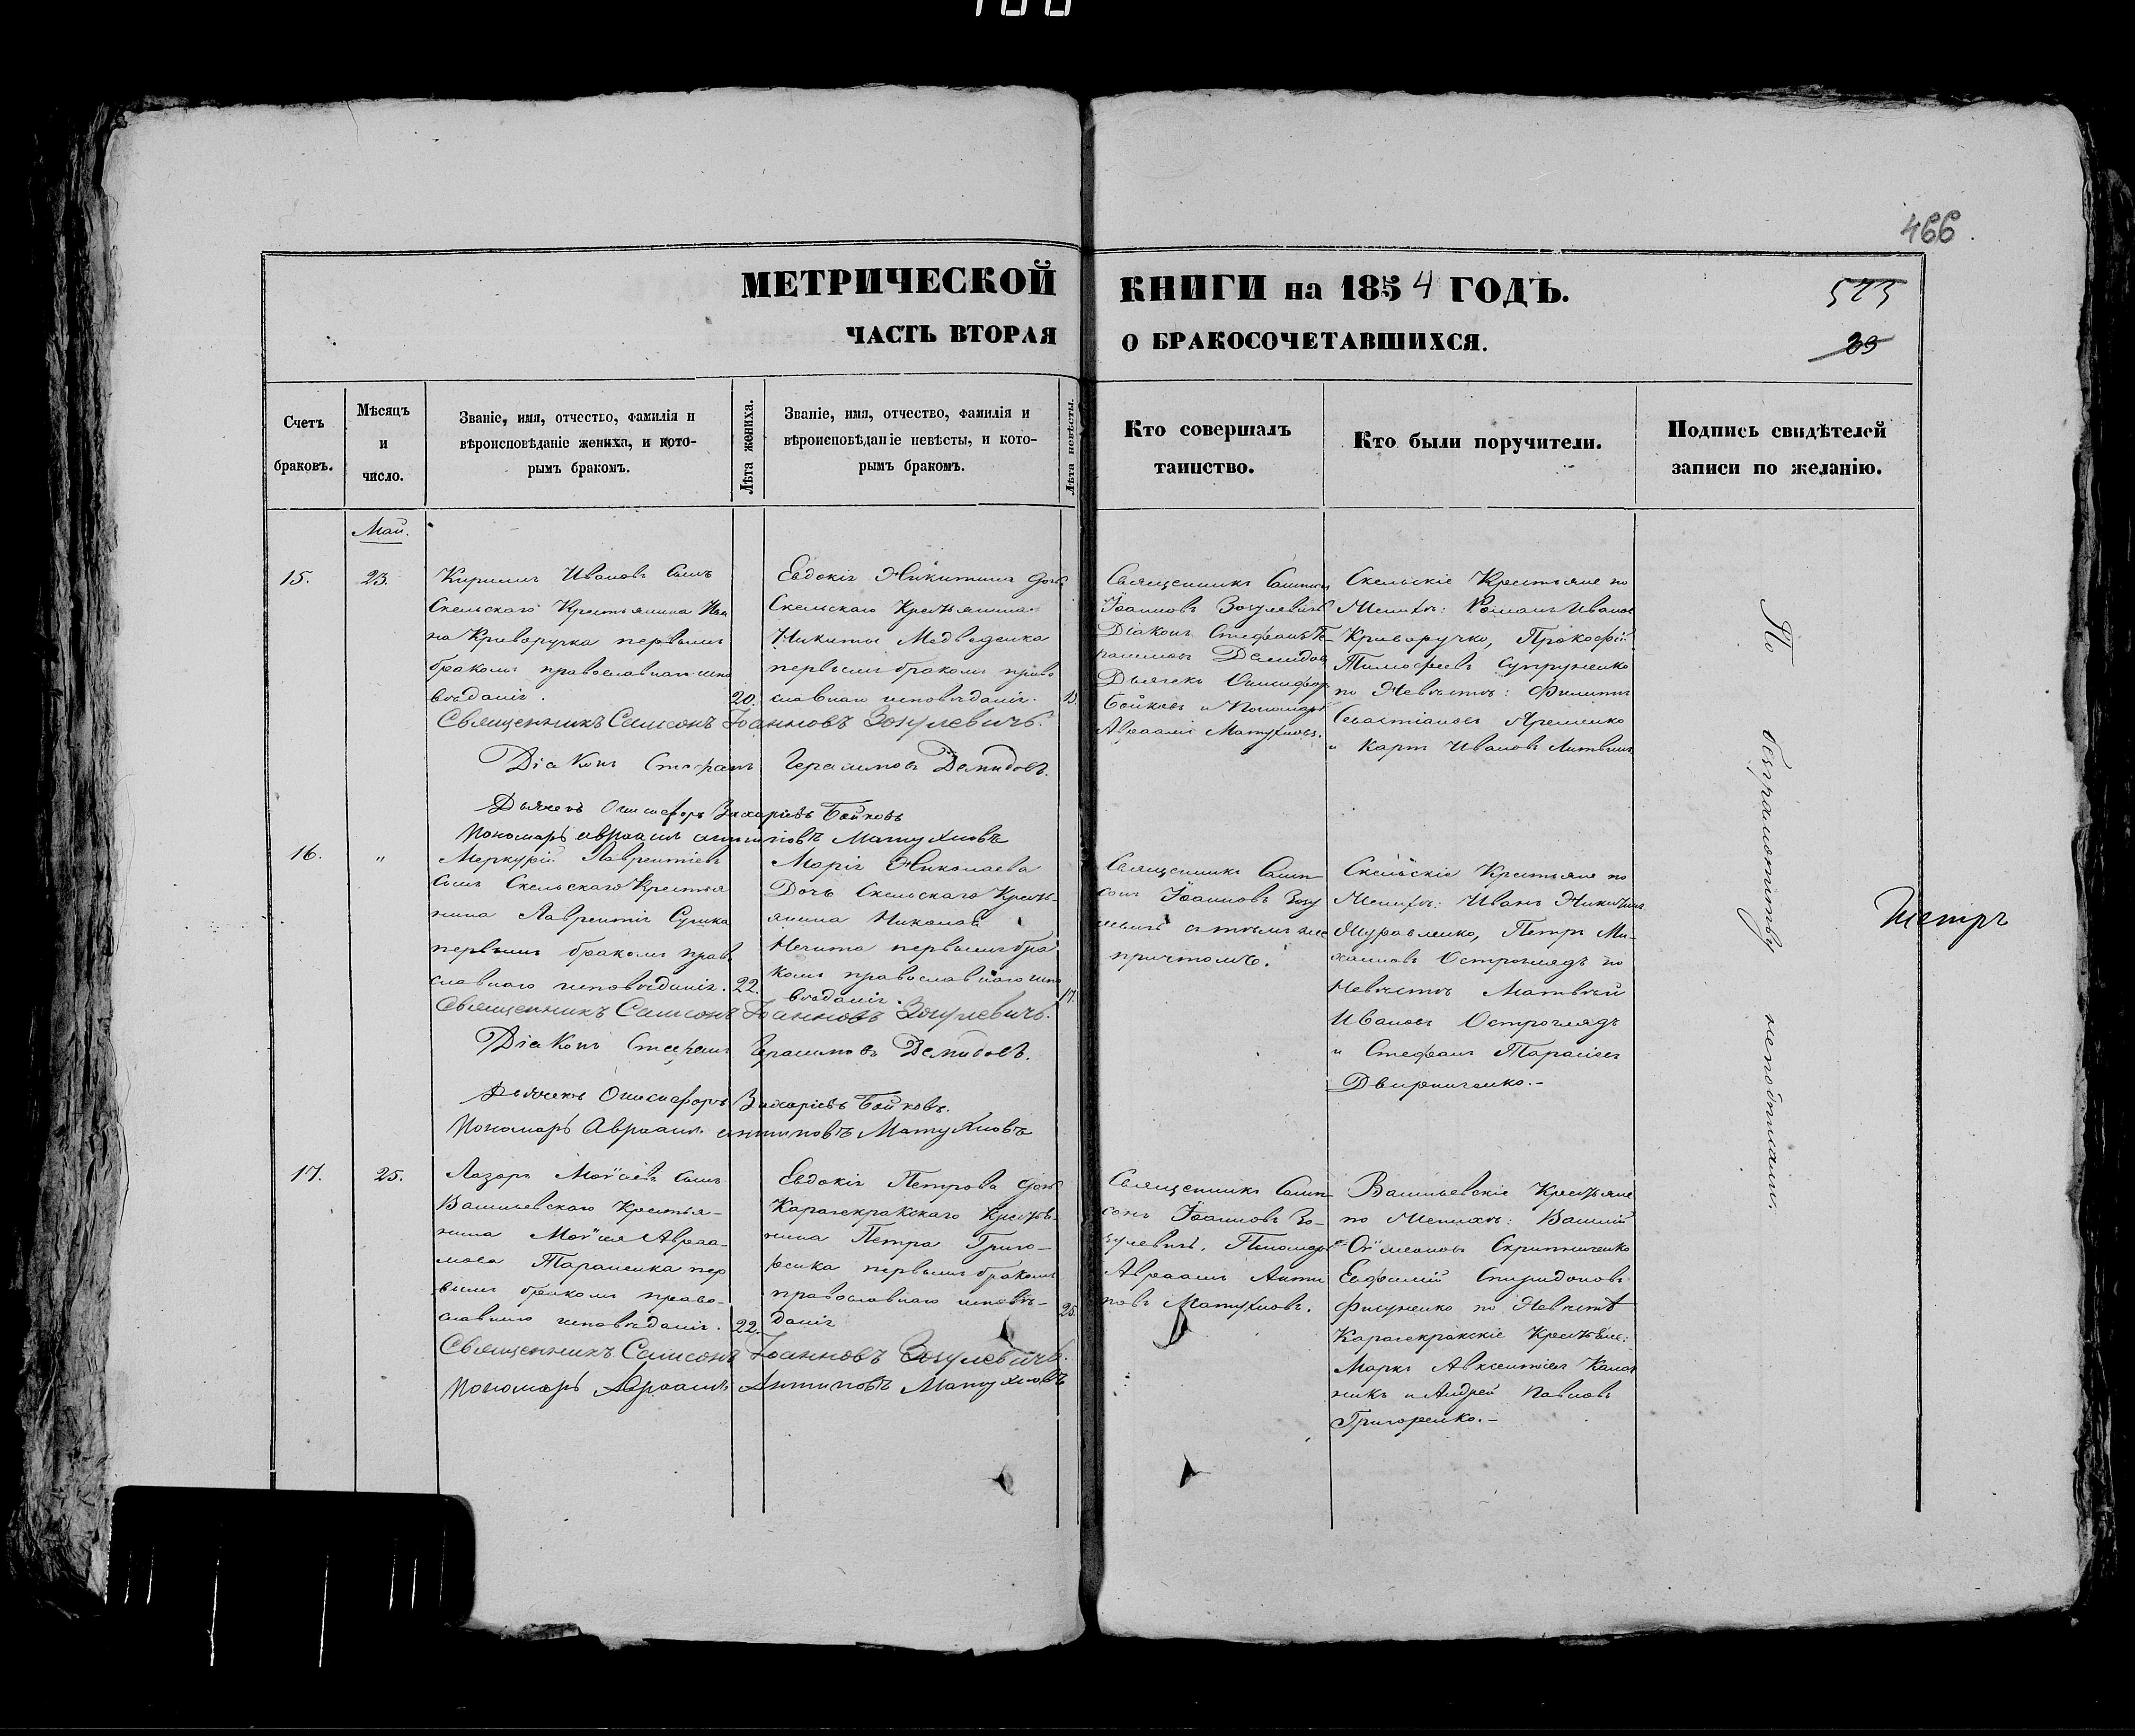 466
МЕТРИЧЕСКОЙ КНИГИ на 1854 ГОДЪ.
ЧАСТЬ ВТОРАЯ О БРАКОСОЧЕТАВШИХСЯ.
Счетъ
браковъ.
Мѣсяцъ
и
число.
Званіе, имя, отчество, фамилія и
вѣроисповѣданіе жениха, и кото-
рымъ бракомъ.
Лѣта жениха.
Званіе, имя, отчество, фамилія и
вѣроисповѣданіе невѣсты, и кото-
рымъ бракомъ.
Лѣта невѣсты.
Кто совершалъ
таинство.
Кто были поручители.
Подпись свидѣтелей
записи по желанію.
Май.
15.
23.
Кириллъ Ивановъ Сынъ
Скельскаго Крестьянина Ива
на Криворучка первымъ
бракомъ православнаго испо
вѣданія.
20.
Евдокія Никитина Дочь
Скельскаго Крестьянина
Никиты Медведенка
первымъ бракомъ право
славнаго исповѣданія.
Священникъ
Іоанновъ Зозулевичъ
Діаконъ Стефанъ Ге-
расимовъ Демидов
Дьячекъ Онисифор
Бойковъ и Пономарь
Авраамъ Матухновъ.
Скельскіе Крестьяне по
Женихѣ: Романъ Иванов
Криворучко, Прокофій
Тимофеевъ Супруненко
по Невѣстѣ: Филиппъ
Севастіановъ Яременко
и Карпъ Ивановъ Литвинъ
Священникъ Самсонъ Іоанновъ Зозулевичъ.
Діаконъ Стефанъ Герасимовъ Демидовъ.
Дьячекъ Онисифоръ Захаріевъ Бойковъ
Пономарь Авраамъ Антиповъ Матухновъ
16.
"
Меркурій Лаврентіевъ
Сынъ Скельскаго Крестья
нина Лаврентія Сушка
первымъ бракомъ право
славнаго исповѣданія.
22.
Марія Николаева
Дочь Скельскаго Кресть-
янина Николая
Нечита первымъ бра
комъ православнаго испо
вѣданія.
17.
Священникъ Самп
сонъ Іоанновъ Зозу
левичъ съ тѣмъ же
причтомъ.
Скельскіе Крестьяне по
Женихѣ: Иванъ Никитинъ
Муравленко, Петръ Ми-
хаиловъ Остроглядъ по
Невѣстѣ Матвѣй
Ивановъ Остроглядъ
и Стефанъ Тарасіев
Двирниченко.-
Священникъ Самсонъ Іоанновъ Зозулевичъ.
Діаконъ Стефанъ Герасимовъ Демидовъ.
Дьячекъ Онисифоръ Захаріевъ Бойковъ.
Пономарь Авраамъ Антиповъ Матухновъ
17.
25.
Лазарь Моѵсіевъ Сынъ
Васильевскаго Крестья-
нина Моѵсея Авраа-
мова Тараненка пер
вымъ бракомъ право-
славнаго исповѣданія.
22.
Евдокія Петрова Дочь
Карачекракскаго Кресть-
нина Петра Григо-
ренка первымъ бракомъ
православнаго исповѣ-
данія
25.
Священникъ Самп
сонъ Іоанновъ Зо-
зулевичъ. Пономарь
Авраамъ Анти
повъ Матухновъ.
Васильевскіе Крестьяне
по Женихѣ: Василій
Сѵмеоновъ Скрипниченко
Евфимій Спиридоновъ
Фисуненко по Невѣстѣ
Карачекракскіе Крестьяне:
Маркъ Авксентіевъ
и Андрей Павловъ
Григоренко.-
Священникъ Самсонъ Іоанновъ Зозулевичъ.
Пономарь Авраамъ Антиповъ Матухновъ
По безграмотству неподписали.